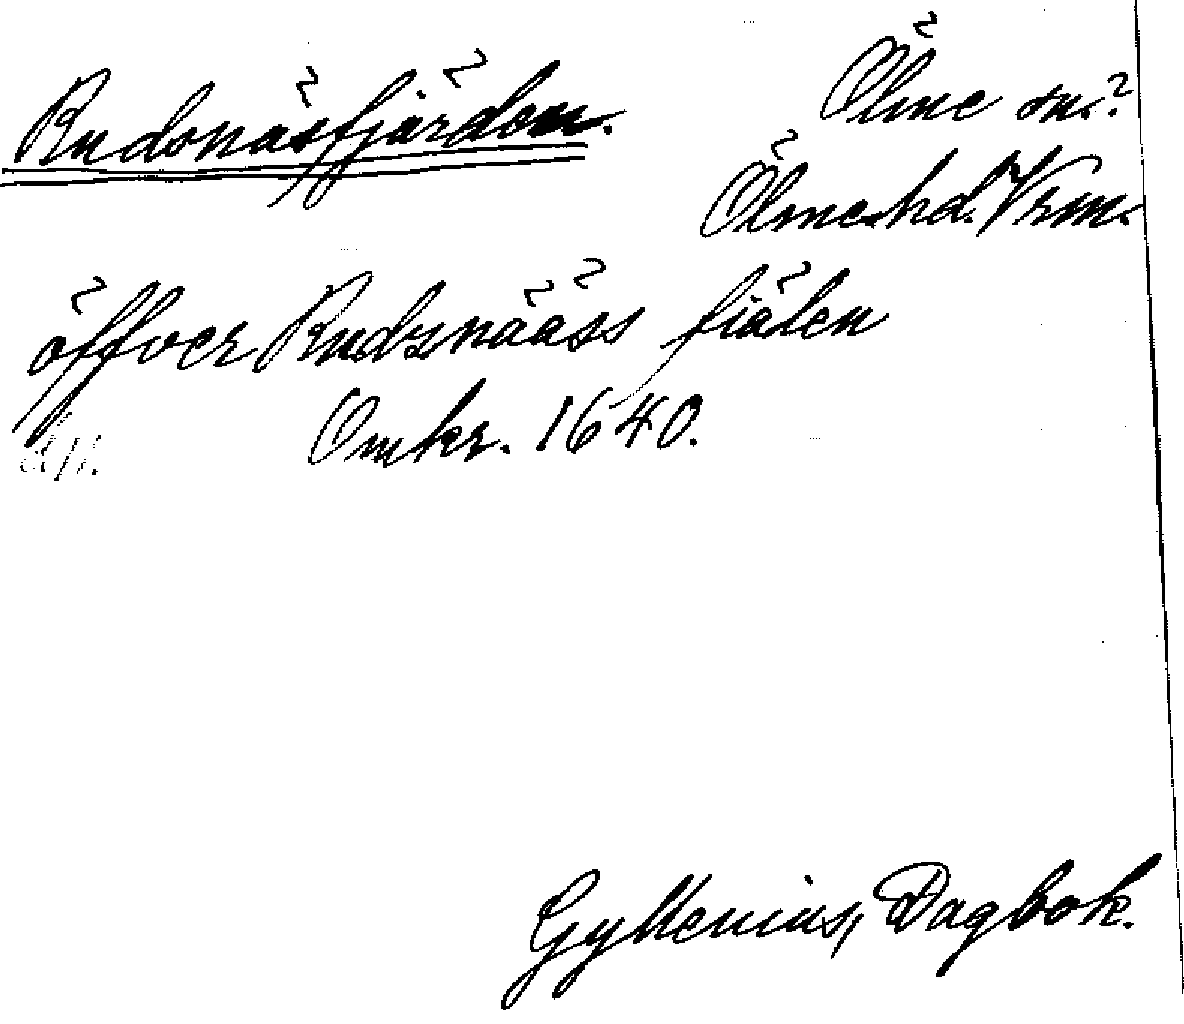 Rudsnäsfjärden.
Ölme sn.?
Ölme hd. Vrm.
öffver Rudznääss fiälen
Omkr. 1640.
Gyllenius, Dagbok.